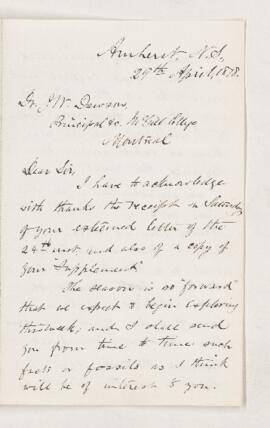 Amherst, N.S.,
29th April, 1878.
Dr. J. W. Dawson,
Principal &c. McGill College
Montreal
Dear Sir,
I have to acknowledge
with thanks the receipt on Saturday
of your esteemed letter of the
24th inst. and also of a copy of
your "Supplement"
The season is so "forward"
that we expect to begin exploring
this week, and I shall send
you from time to time such
facts or fossils as I think
will be of interest to you.